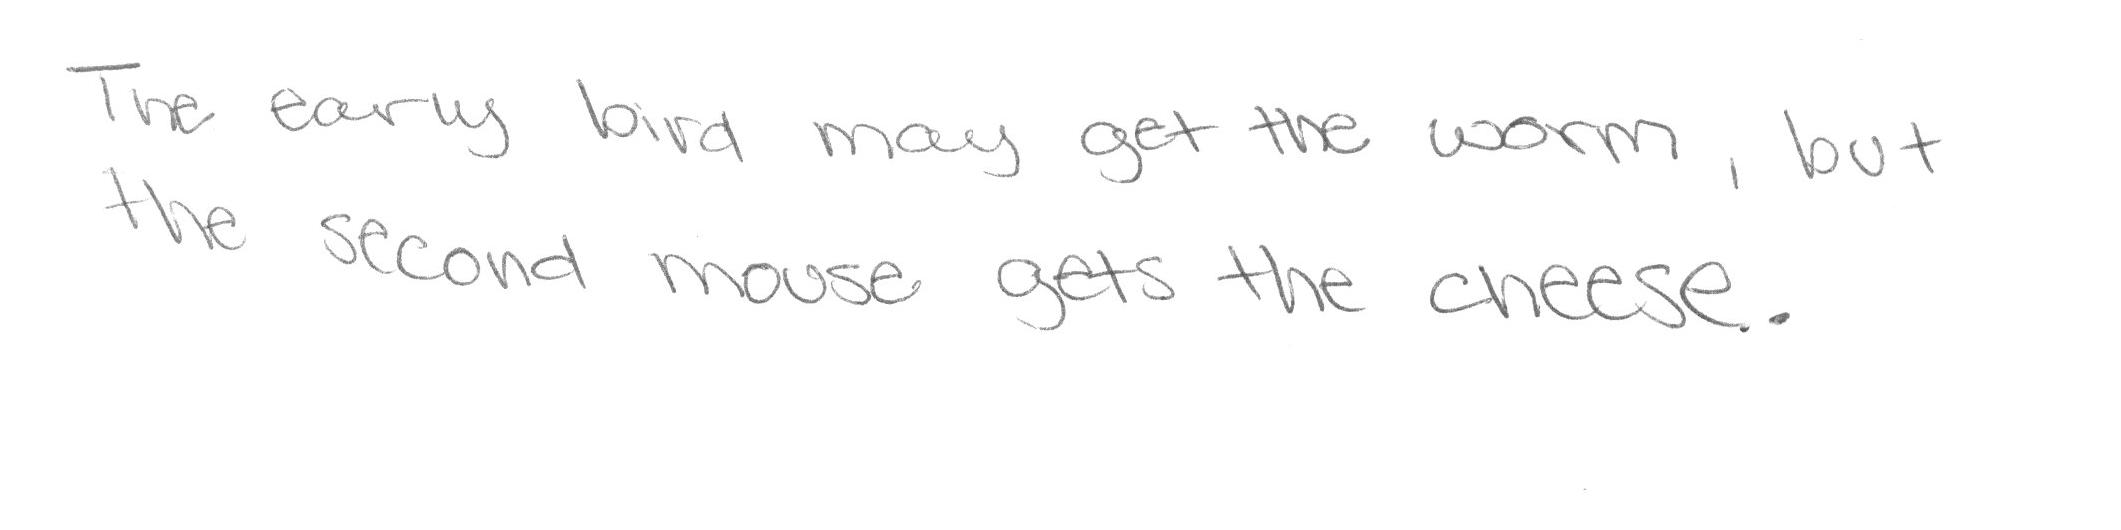 The early bird may get the worm, but
the second mouse gets the cheese..